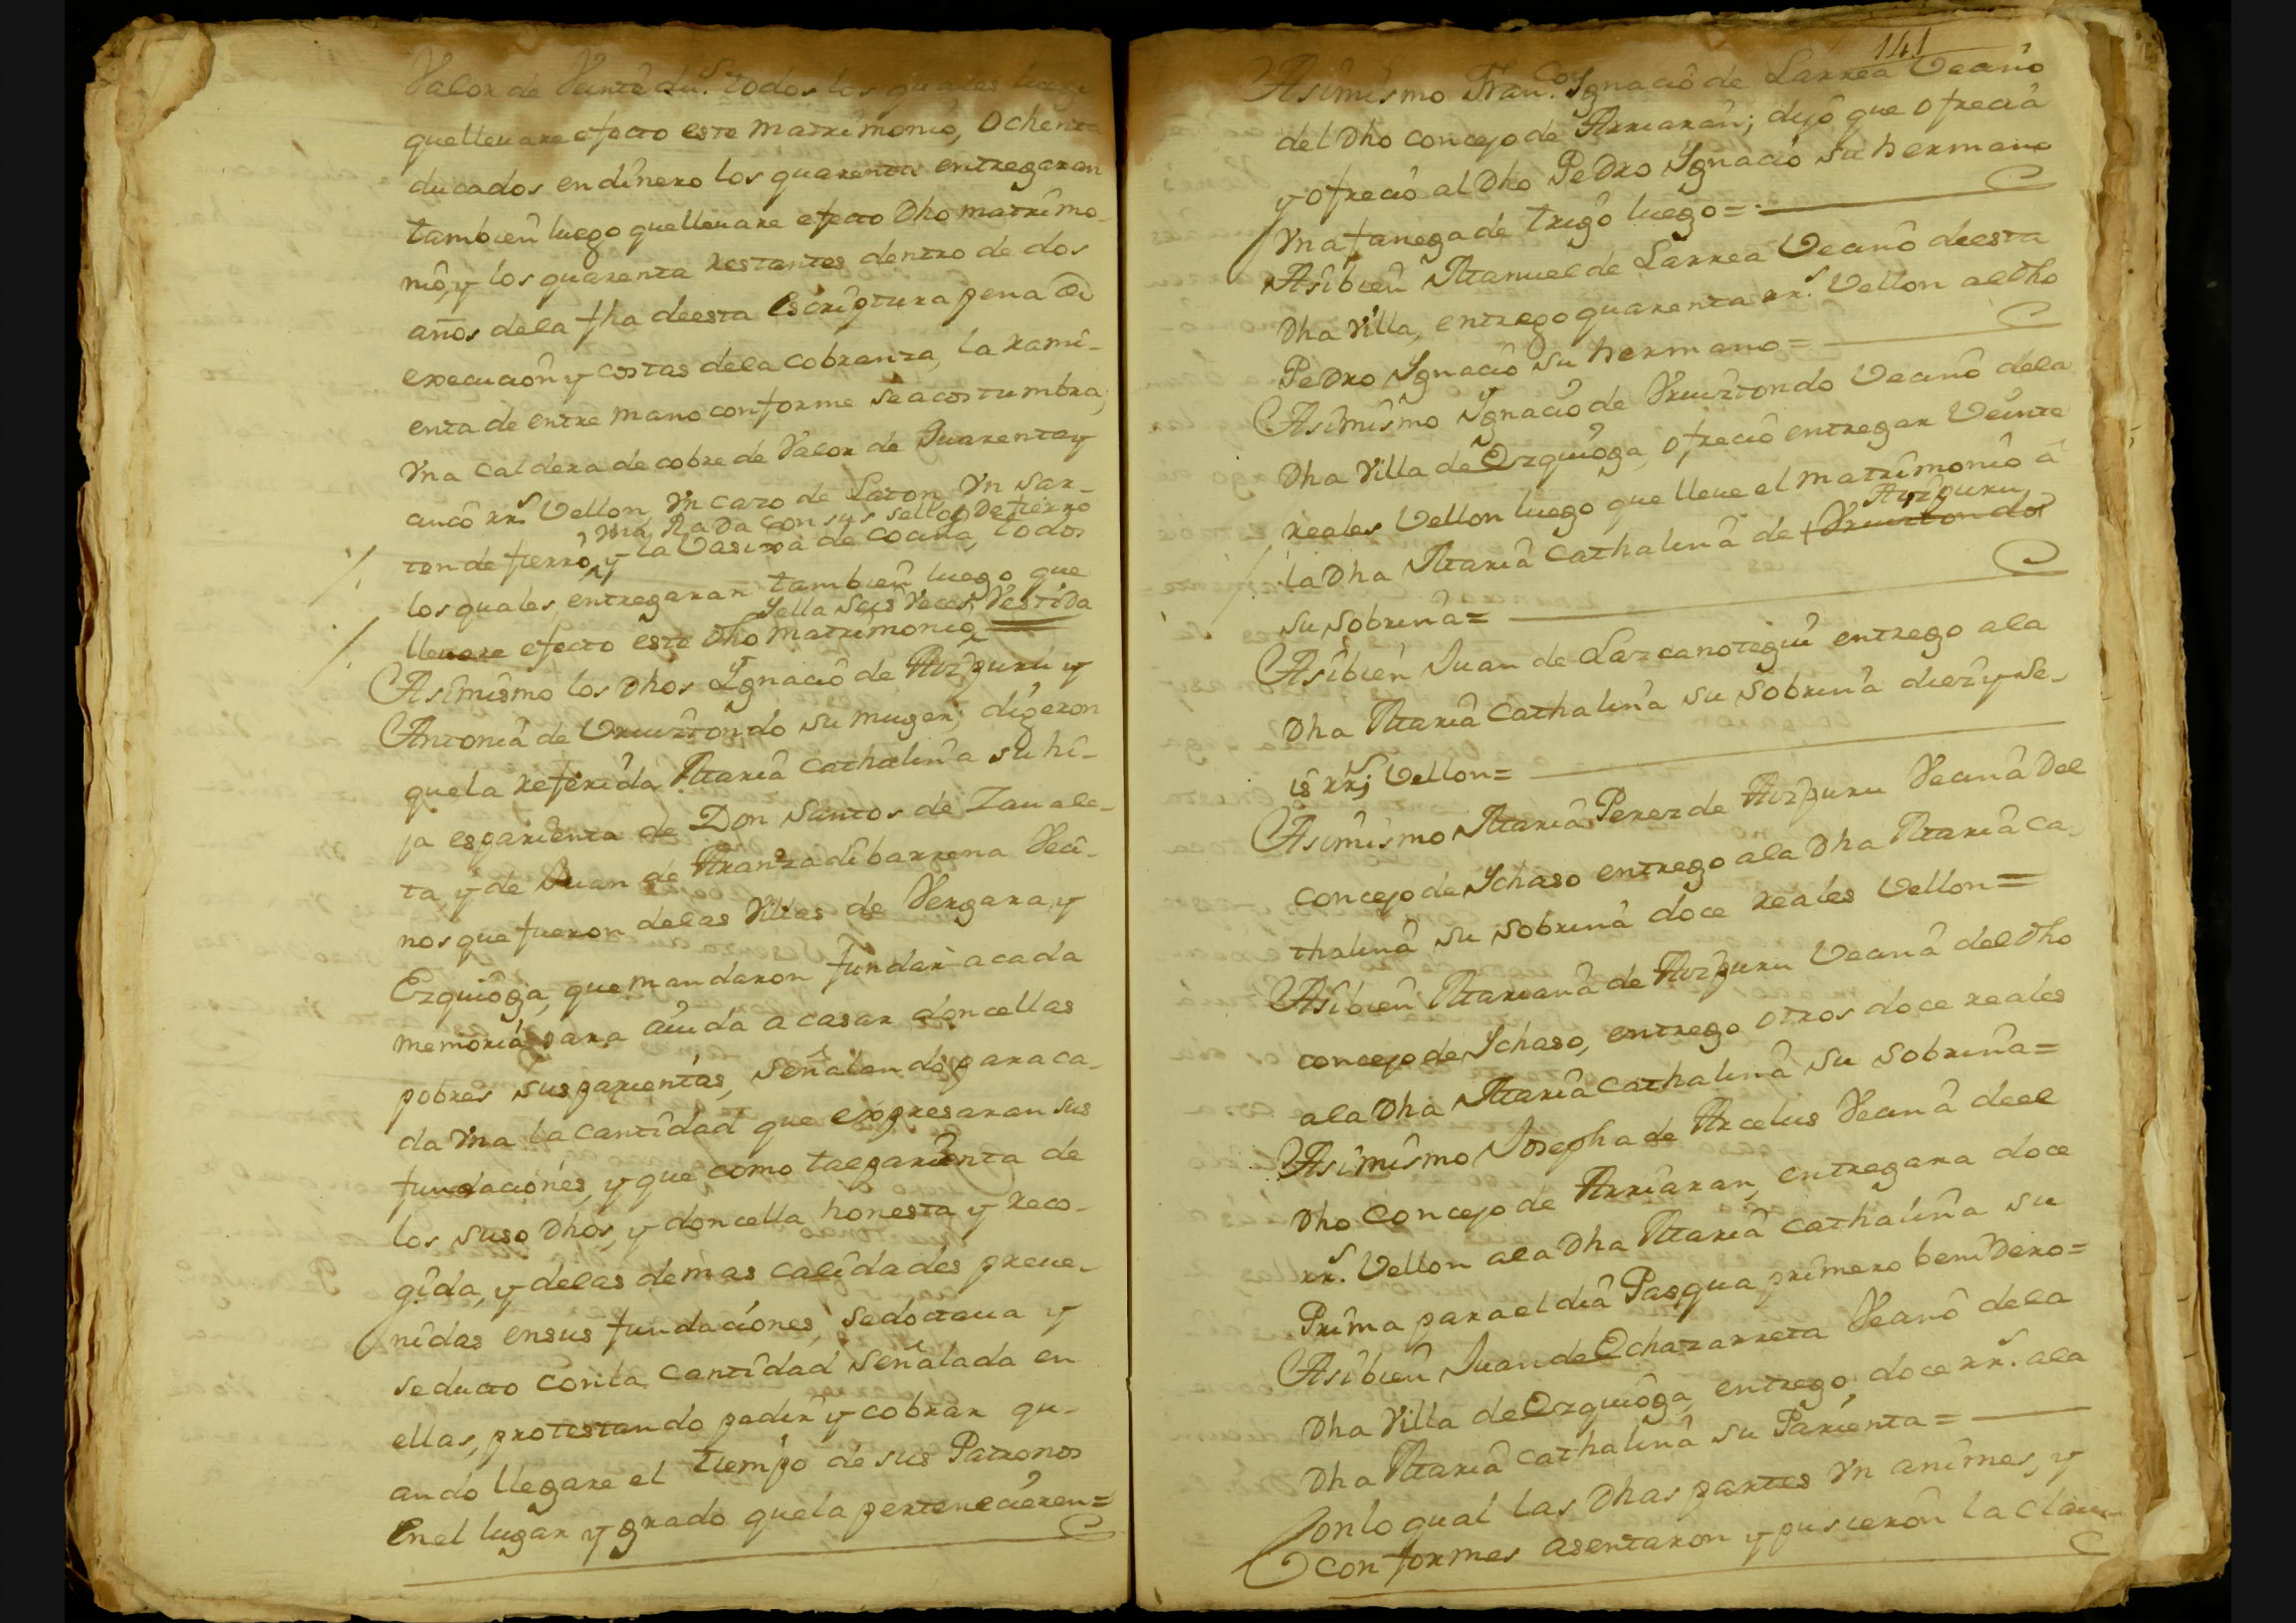 Valor de Veinte du.s todos los quales luego
quellevare efecto este matrimonio, Ochenta
ducados en dinero los quarenta entregaran
tambien luego quellevare efecto Dho matrimo-
nio, y los quarenta restantes dentro de dos
años dela fha deesta escriptura pena de
execucion y costas dela cobranza, la rami-
enta de entre mano conforme se acostumbra,
Vna caldera de cobre de Valor de Quarenta y
cinco rr.s Vellon, Vn cazo de Laton, Vn sar-
Vna Rada con sus sellos de fierro
ten de fierro, y la Vasixa de cocina, todos
los quales, entregaran tambien luego que
Yella seis Veces Vestida
llevare efecto este Dho matrimonio
Asimismo los Dhos Ygnacio de Aizpuru y
Antonia de Urruiztondo su muger; digeron
quela referida Maria Cathalina su hi-
ja esparienta de Don Santos de Zauale-
ta, y de Juan de Aranzadibarrena Veci-
nos que fueron delas Villas de Vergara, y
Ezquioga, que mandaron fundar a cada
memoria para aiuda a casar doncellas
pobres sus parientas, señalando para ca-
da Vna la cantidad que expresaran sus
fundaciones, y que como tal parienta de
los suso Dhos, y doncella honesta y reco-
gida, y delas demas calidades preve-
nidas ensus fundaciones, sedoctaua y
seducto con la cantidad señalada en
ellas, protestando pedir y cobrar qu-
ando llegare el tiempo de sus Patronos
Enel lugar y grado quela perteneciéren=
141
Asimismo Fran.co Ygnacio de Larrea Vecino
del Dho Concejo de Arriaran; dijo que ofrecia
y ofrecio al Dho Pedro Ygnacio su hermano
Vna fanega de trigo luego=
Asibien Manuel de Larrea Vecino deesta
Dha Villa, entrego quarenta rr.s Vellon al Dho
Pedro Ygnacio su hermano=
Asimismo Ygnacio de Vrruiztondo Vecino dela
Dha Villa de Ezquioga, ofrecio entregar Veinte
reales Vellon luego que lleve el matrimonio á
Aizpuru
la Dha Maria Cathalina de Vrruiztondo
su sobrina=
Asibien Juan de Lazcanotegui entrego ala
Dha Maria Cathalina su sobrina diez y se-
is rr.s Vellon=
Asimismo Maria Perez de Aizpuru Vecina del
concejo de Ychaso entrego ala Dha Maria Ca-
thalina su sobrina doce reales Vellon=
Asibien Mariana de Aizpuru Vecina del Dho
concejo de Ychaso, entrego otros doce reales
ala Dha Maria Cathalina su sobrina=
Asimismo Josepha de Arcelus Vecina deel
Dho Concejo de Arriaran, entregara doce
rr.s Vellon ala Dha Maria Cathalina su
Prima para el dia Pasqua primero benidero=
Asibien Juan de Echazarreta Vecino dela
Dha Villa de Ezquioga, entrego doce rr.s ala
Dha Maria Cathalina su Parienta=
Conlo qual las Dhas partes Vn animes, y
conformes asentaron y pusieron la clau-